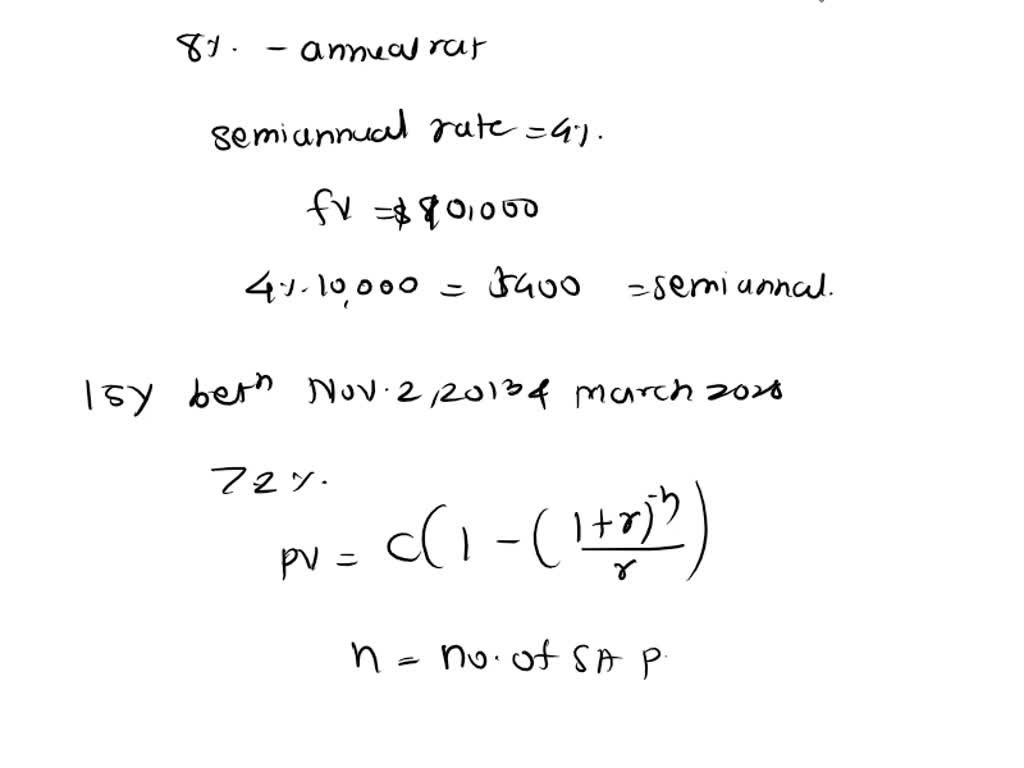 8%. - annual rat
semiannual rate = 4%.
fv = $10,000
4%. 10,000 = $400 = semi annal.
15y betn Nov. 2, 2013 & march 2028
72%.
PV = C(1 - ((1+r)^-n / r))
n = no. of SA P.